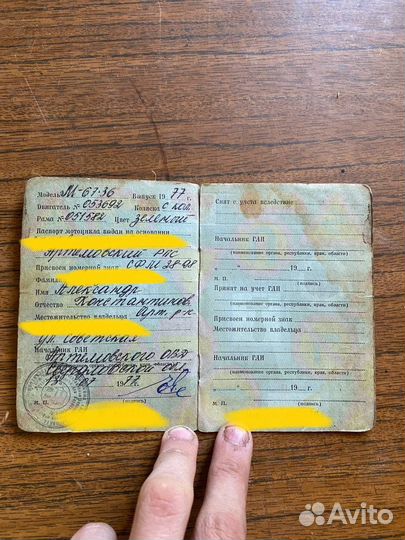 Модель М-67-36 Выпуск 1977 г.
Двигатель № 053692 Коляска с кол.
Рама № 051582 Цвет зеленый
Паспорт мотоцикла выдан на основании
Артемовский РПС
Присвоен номерной знак СФМ 28-98
Фамил
Имя Александр
Отчество Константинов.
Местожительство владельца Арт. р-н
ул. Советская
Начальник ГАИ
Артемовского ОВД
Свердловской обл.
1977
М. П. (подпись)
Снят с учета вследствие
Начальник ГАИ
(наименование органа, республики, края, области)
19 г.
М. П. (подпись)
Принят на учет ГАИ
(наименование органа, республики, края, области)
Присвоен номерной знак
Местожительство владельца
Начальник ГАИ
(наименование органа, республики, края, области)
19 г.
М. П. (подпись)
Avito